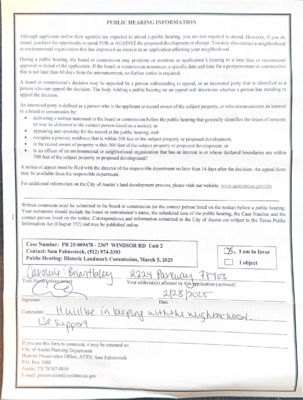 PUBLIC HEARING INFORMATION
Although applicants and/or their agent(s) are expected to attend a public hearing, you are not required to attend. However, if you do
attend, you have the opportunity to speak FOR or AGAINST the proposed development or change. You may also contact a neighborhood
or environmental organization that has expressed an interest in an application affecting your neighborhood.
During a public hearing, the board or commission may postpone or continue an application's hearing to a later date or recommend
approval or denial of the application. If the board or commission announces a specific date and time for a postponement or continuation
that is not later than 60 days from the announcement, no further notice is required.
A board or commission's decision may be appealed by a person with standing to appeal, or an interested party that is identified as a
person who can appeal the decision. The body holding a public hearing on an appeal will determine whether a person has standing to
appeal the decision.
An interested party is defined as a person who is the applicant or record owner of the subject property, or who communicates an interest
to a board or commission by:
• delivering a written statement to the board or commission before the public hearing that generally identifies the issues of concern
(it may be delivered to the contact person listed on a notice); or
• appearing and speaking for the record at the public hearing; and:
• occupies a primary residence that is within 500 feet of the subject property or proposed development;
• is the record owner of property within 500 feet of the subject property or proposed development; or
• is an officer of an environmental or neighborhood organization that has an interest in or whose declared boundaries are within
500 feet of the subject property or proposed development.
A notice of appeal must be filed with the director of the responsible department no later than 14 days after the decision. An appeal form
may be available from the responsible department.
For additional information on the City of Austin's land development process, please visit our website:
Written comments must be submitted to the board or commission (or the contact person listed on the notice) before a public hearing.
Your comments should include the board or commission's name, the scheduled date of the public hearing, the Case Number and the
contact person listed on the notice. Correspondence and information submitted to the City of Austin are subject to the Texas Public
Information Act (Chapter 552) and may be published online.
Case Number: PR 25-009478 - 2307 WINDSOR RD Unit 2
Contact: Sam Fahnestock, (512) 974-3393
Public Hearing: Historic Landmark Commission, March 5, 2025
I am in favor
I object
Caroline 2224 Parkway 78703
Your Name Your address(es) affected by this application (optional)
2/28/2025
Signature Date
Comments: It will be in keeping with the neighborhood.
We support
If you use this form to comment, it may be returned to:
City of Austin Planning Department
Historic Preservation Office, ATTN: Sam Fahnestock
P.O. Box 1088
Austin, TX 78767-8810
E-mail: